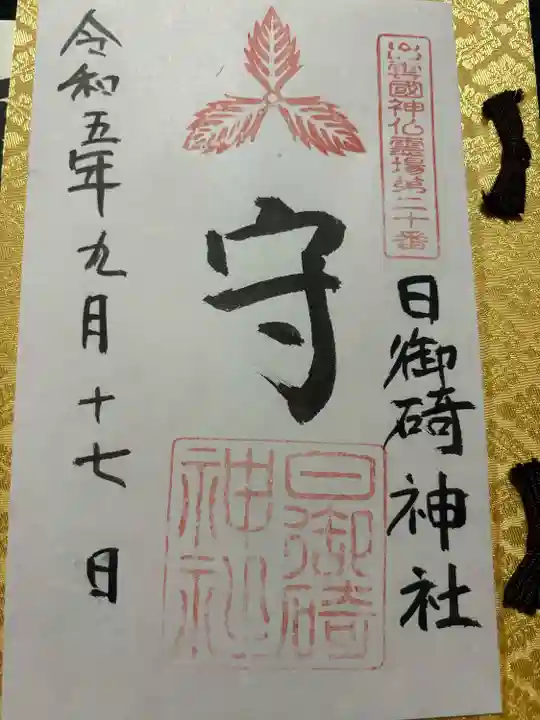 出雲國神仏霊場第二十番
日御碕神社
守
日御碕
神社
令和五年九月十七日